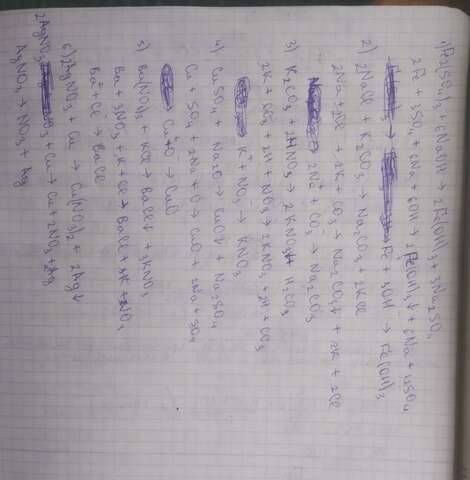 1) Fe2(SO4)3 + 6NaOH → 2Fe(OH)3 + 3Na2SO4
2Fe + 3SO4 + 6Na + 6OH → 2Fe(OH)3↓ + 6Na + 3SO4
Fe + 3OH → Fe(OH)3
2) 2NaCl + K2CO3 → Na2CO3 + 2KCl
2Na + 2Cl + 2K + CO3 → Na2CO3↓ + 2K + 2Cl
2Na⁺ + CO3⁻ → Na2CO3
3) K2CO3 + 2HNO3 → 2KNO3 + H2CO3
2K + CO3 + 2H + NO3 → 2KNO3 + 2H + CO3
K⁺ + NO3⁻ → KNO3
4) CuSO4 + Na2O → CuO↓ + Na2SO4
Cu + SO4 + 2Na + O → CuO + 2Na + SO4
Cu⁺ + O⁻ → CuO
5) Ba(NO3)2 + KCl → BaCl↓ + 3KNO3
Ba + 3NO3 + K + Cl → BaCl + 3K + NO3
Ba⁺ + Cl⁻ → BaCl
6) 2AgNO3 + Cu → Cu(NO3)2 + 2Ag↓
2AgNO3 + Cu → Cu + 2NO3 + 2Ag
AgNO3 → NO3 + Ag